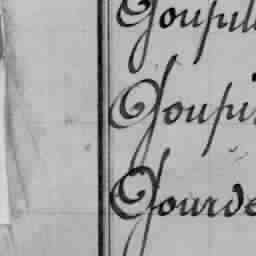 Goupill
Goupi
Gourde